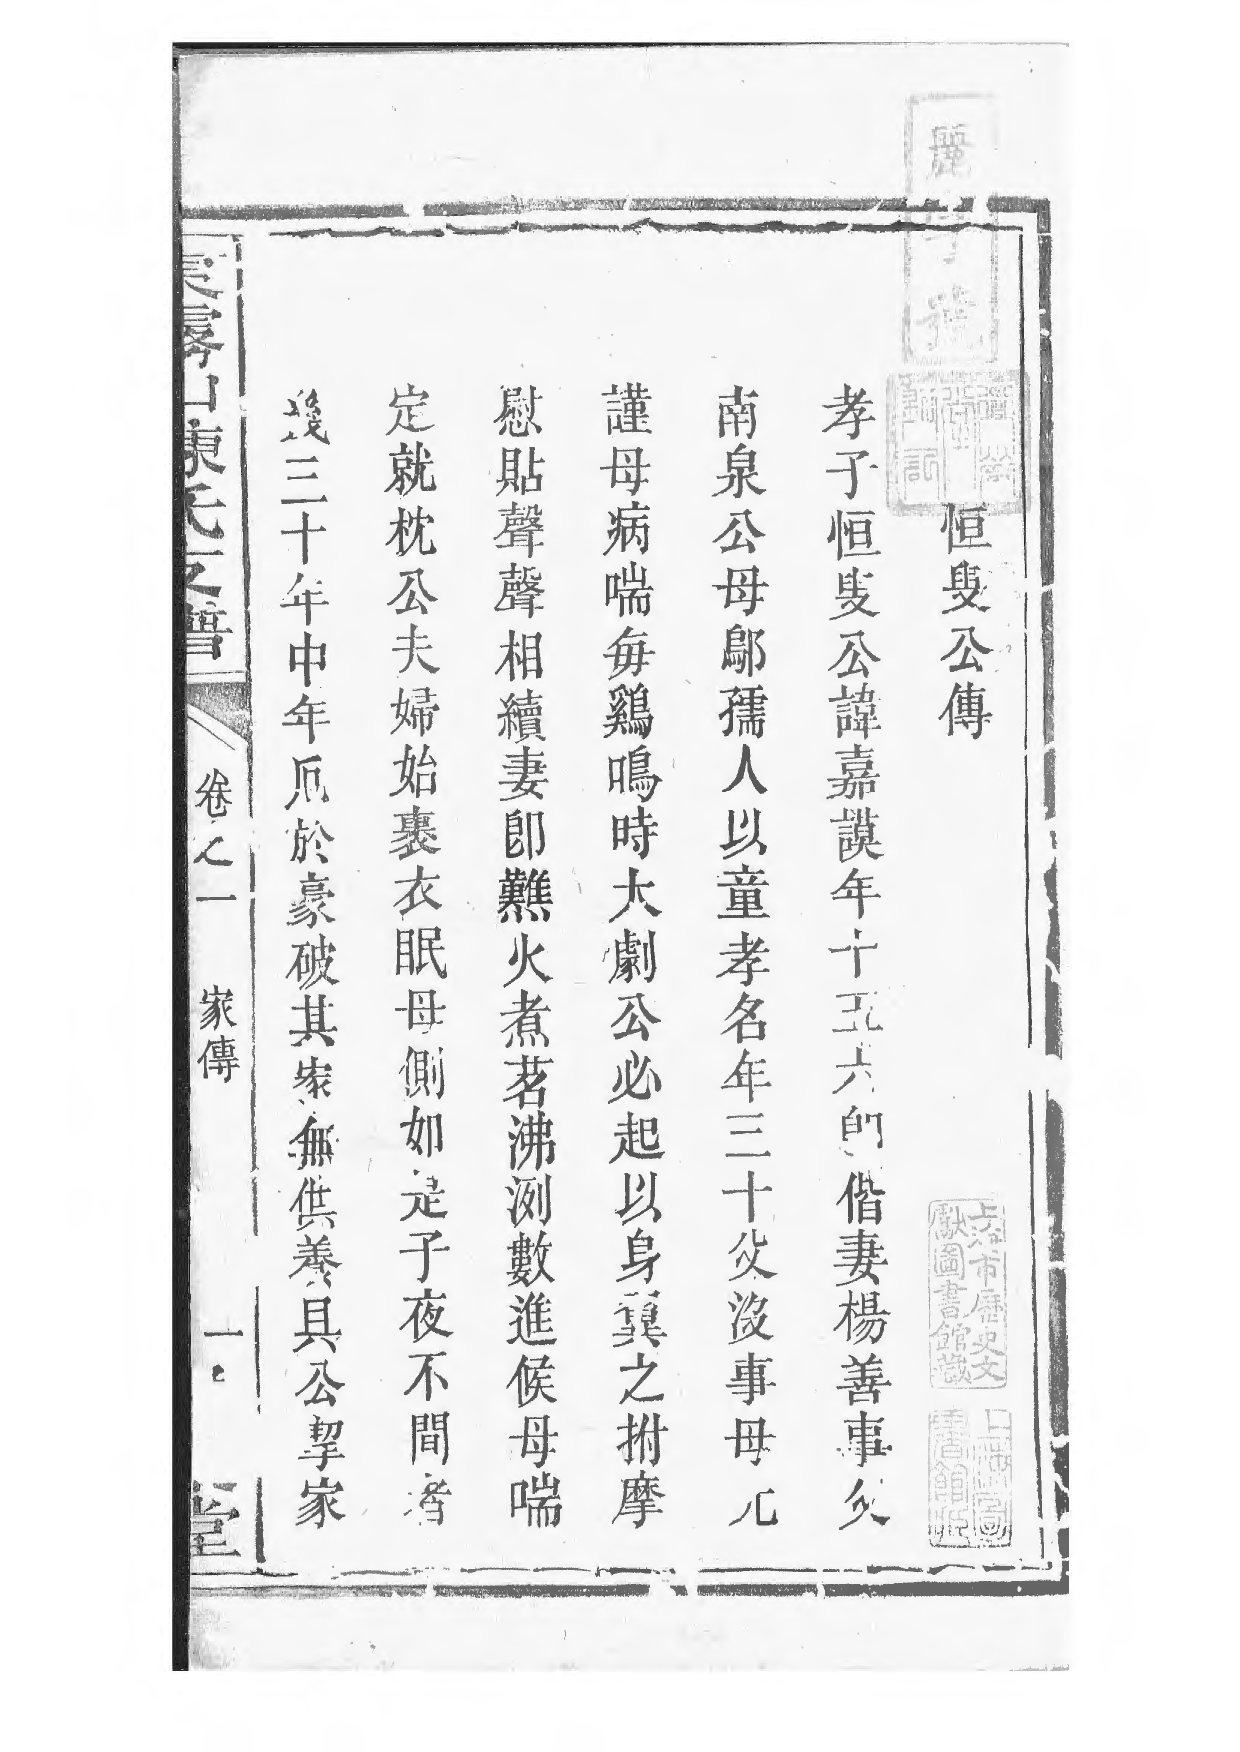 恒叟公傳
孝子恒叟公諱嘉謨年十五六卽偕妻楊善事父
南泉公母鄔孺人以童孝名年三十父沒事母尤
謹母病喘每鷄鳴時大劇公必起以身翼之拊摩
慰貼聲聲相續妻卽爇火煮茗沸洌數進候母喘
定就枕公夫婦始裹衣眠母側如是子夜不間者
幾三十年中年厄於豪破其家無供養具公挈家
霧山陳氏支譜
卷之一
家傳
一
堂
上海市歷史文
獻圖書館藏